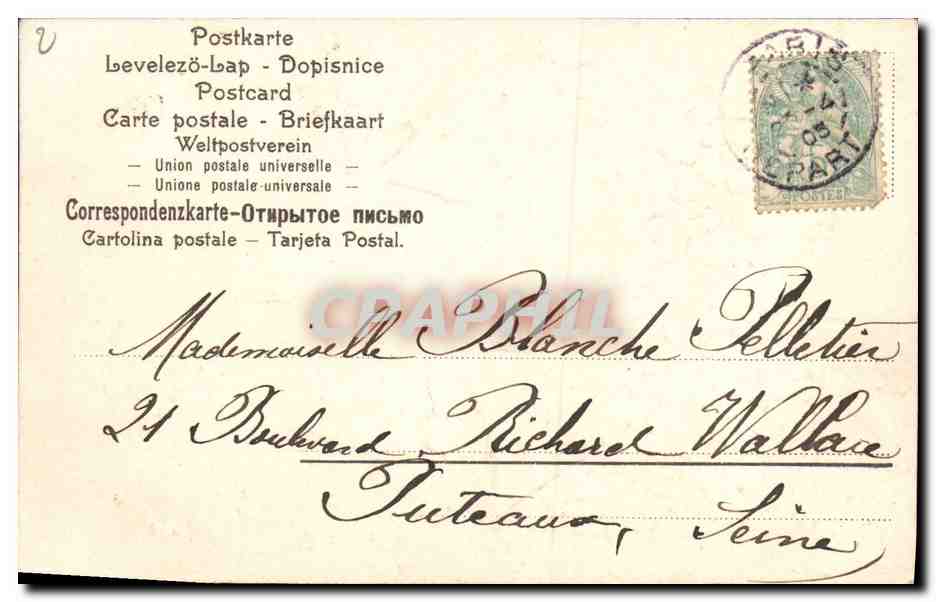 2
Postkarte
Levelezö-Lap - Dopisnice
Postcard
Carte postale - Briefkaart
Weltpostverein
— Union postale universelle —
— Unione postale universale —
Correspondenzkarte-Открытое письмо
Cartolina postale — Tarjeta Postal.
PARIS
05
PART
POSTES
CPAPHIL
Mademoiselle Blanche Pelletier
21 Boulevard Richard Wallace
Puteaux, Seine